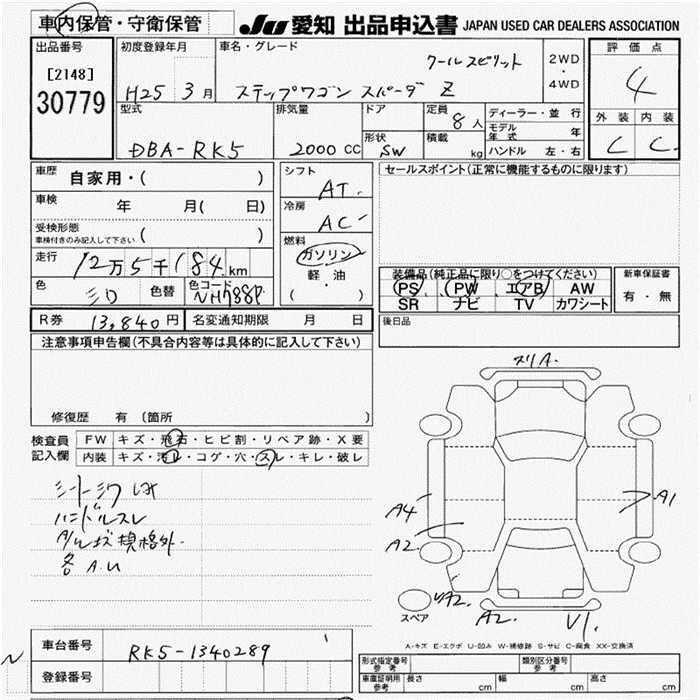 車内保管・守衛保管
JU 愛知 出品申込書 JAPAN USED CAR DEALERS ASSOCIATION
出品番号
[2148]
30779
初度登録年月
H25 3月
車名・グレード
クールスピリット
ステップワゴン スパーダ Z
2WD
・
4WD
評価点
4
外装 内装
C C
型式
DBA-RK5
排気量
2000 CC
ドア
形状
SW
定員
8人
積載
kg
ディーラー・並行
モデル年式 年
ハンドル 左・右
車歴
自家用・( )
車検
年 月( 日)
受検形態
車検付きのみ記入して下さい ( )
走行
12万5千184km
色
シロ
色替
色コード
NH788P
シフト
AT
冷房
AC
燃料
ガソリン
・
軽・油
( )
セールスポイント(正常に機能するものに限ります)
装備品(純正品に限り○をつけてください)
PS PW エアB AW
SR ナビ TV カワシート
新車保証書
有・無
後日品
R券 13,840円
名変通知期限 月 日
注意事項申告欄(不具合内容等は具体的に記入して下さい)
修復歴 有 (箇所 )
検査員
記入欄
FW キズ・飛石・ヒビ割・リペア跡・X要
内装 キズ・汚レ・コゲ・穴・スレ・キレ・破レ
シートシワ
ハンドルスレ
規格外
各A.U
スリA.
A4
A2
A1
A2.
A2.
V1.
スペア
A-キズ E-エクボ U-凹み W-補修跡 S-サビ C-腐食 XX-交換済
車台番号
RK5-1340289
登録番号
型式指定番号
参考
類別区分番号
参考
車庫証明用
参考
長さ cm 幅 cm 高さ cm